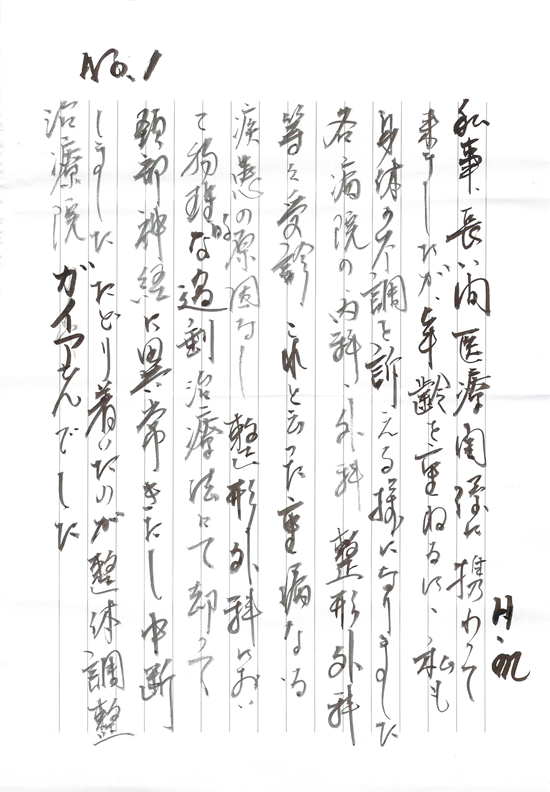 No.1
H.M
私事、長い間医療関係に携わって
来ましたが、年齢を重ねるに、私も
身体の不調を訴える様になりました
各病院の内科、外科 整形外科
等々受診 これと云った重病なる
疾患の原因なし 整形外科におい
て 過剰治療法にて却って
頸部神経に異常きたし中断
しました たどり着いたのが整体調整
治療院 ガイアさんでした